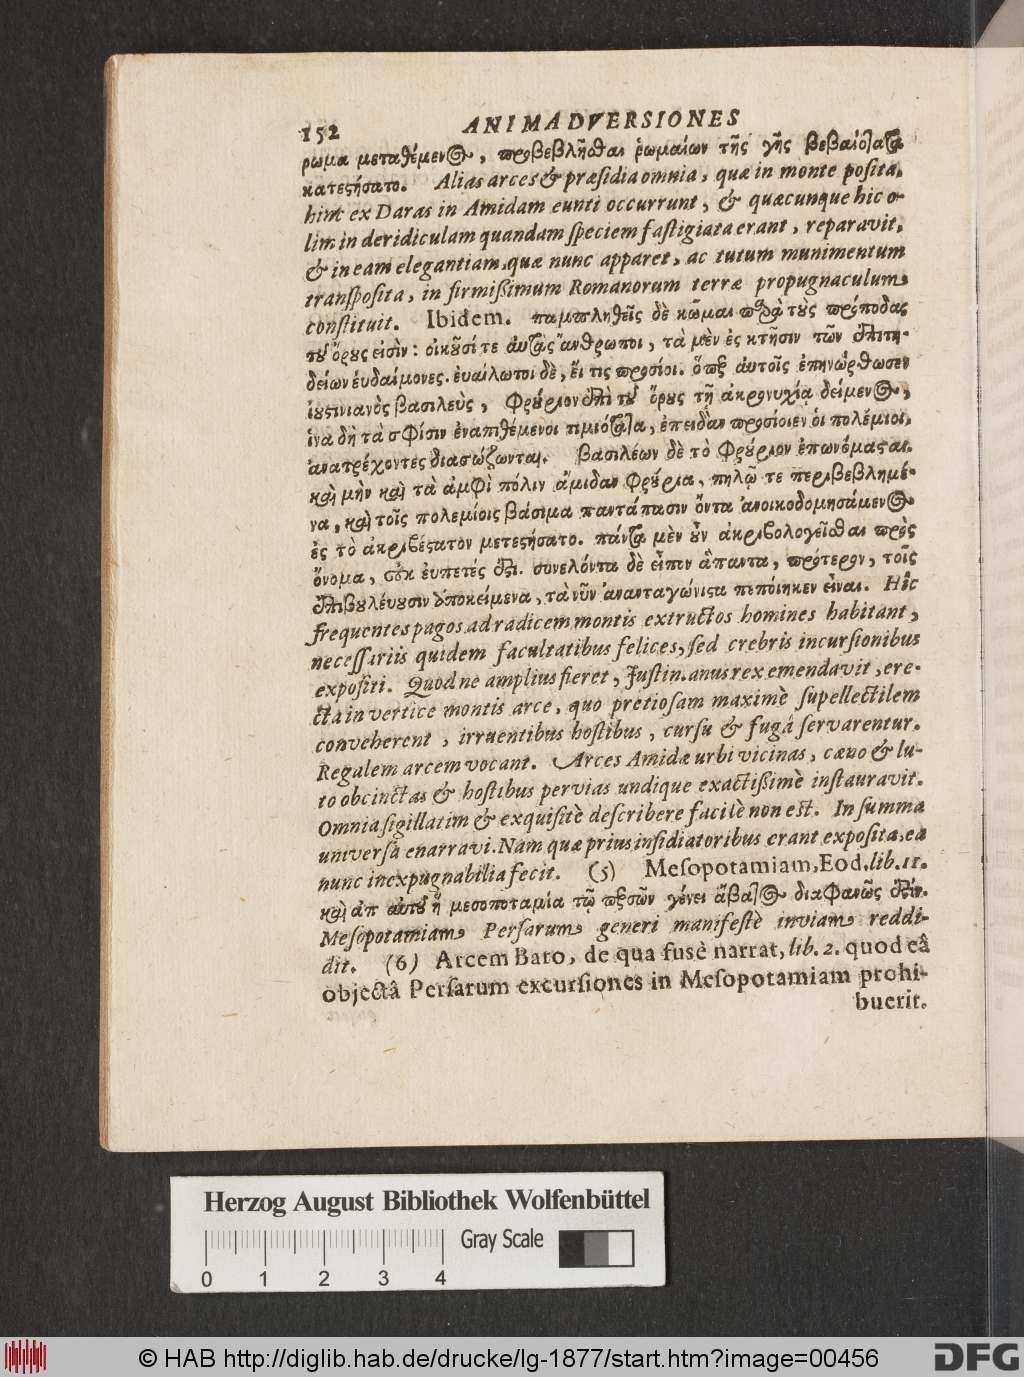 152 ANIMADVERSIONES
ρωμα μεταθέμενος, προβεβλῆσθαι ῥωμαίων τῆς γῆς βεβαιότατα
κατεςήσατο. Alias arces & præsidia omnia, quæ in monte posita,
hinc ex Daras in Amidam eunti occurrunt, & quæcunque hic o-
lim in deridiculam quandam speciem fastigiata erant, reparavit,
& in eam elegantiam, quæ nunc apparet, ac tutum munimentum
transposita, in firmissimum Romanorum terræ propugnaculum
constituit. Ibidem. παμπληθεῖς δὲ κῶμαι παρὰ τοὺς πρόποδας
τοῦ ὄρους εἰσὶν: οἰκοῦσί τε αὐτὰς ἄνθρωποι, τὰ μὲν ἐς κτῆσιν τῶν ἐπιτη-
δείων ἐυδαίμονες. ἐυαίλωτοι δὲ, ἔι τις προσίοι. ὅπερ ἀυτοῖς ἐπηνώρθωσεν
ἰουςινιανὸς βασιλεὺς, φρούριον ἐπὶ τοῦ ὄρους τῇ ἀκρωνυχίᾳ δείμενος,
ἵνα δὴ τὰ σφίσιν ἐναπιθέμενοι τιμιώτατα, ἐπειδὰν προσίοιεν ὁι πολέμιοι,
ἀνατρέχοντες διασώζωνται. βασιλέων δὲ τὸ φρούριον ἐπωνόμασαι.
καὶ μὴν καὶ τὰ ἀμφὶ πόλιν ἄμιδαν φρούρια, πηλῷ τε περιβεβλημέ-
να, καὶ τοῖς πολεμίοις βάσιμα παντάπασιν ὄντα ἀνοικοδομησάμενος
ἐς τὸ ἀκριβέςατον μετεςήσατο. πάντα μὲν οὖν ἀκριβολογεῖσθαι πρὸς
ὄνομα, οὐκ ἐυπετές ἐςι. συνελόντα δὲ εἰπεῖν ἅπαντα, πρότερον, τοῖς
ἐπιβουλέυουσιν ὑποκείμενα, τὰ νῦν ἀνανταγώνιςα πεποίηκεν εἶναι. Hîc
frequentes pagos ad radicem montis extructos homines habitant,
necessariis quidem facultatibus felices, sed crebris incursionibus
expositi. Quod ne amplius fieret, Justin.anus rex emendavit, ere-
cta in vertice montis arce, quo pretiosam maximè supellectilem
conveherent, irruentibus hostibus, cursu & fugâ servarentur.
Regalem arcem vocant. Arces Amidæ urbi vicinas, cæno & lu-
to obcinctas & hostibus pervias undique exactissimè instauravit.
Omnia sigillatim & exquisitè describere facilè non est. In summa
universa enarravi. Nam quæ prius insidiatoribus erant exposita, ea
nunc inexpugnabilia fecit. (5) Mesopotamiam, Eod. lib. 11.
καὶ ἀπ αὐτοῦ ἡ μεσοποταμία τῷ περσῶν γένει ἄβατος διαφανῶς ἐςίν.
Mesopotamiam Persarum generi manifestè inviam reddi-
dit. (6) Arcem Baro, de qua fusè narrat, lib. 2. quod eâ
objectâ Persarum excursiones in Mesopotamiam prohi-
buerit.
Herzog August Bibliothek Wolfenbüttel
0 1 2 3 4 Gray Scale
© HAB http://diglib.hab.de/drucke/lg-1877/start.htm?image=00456
DFG